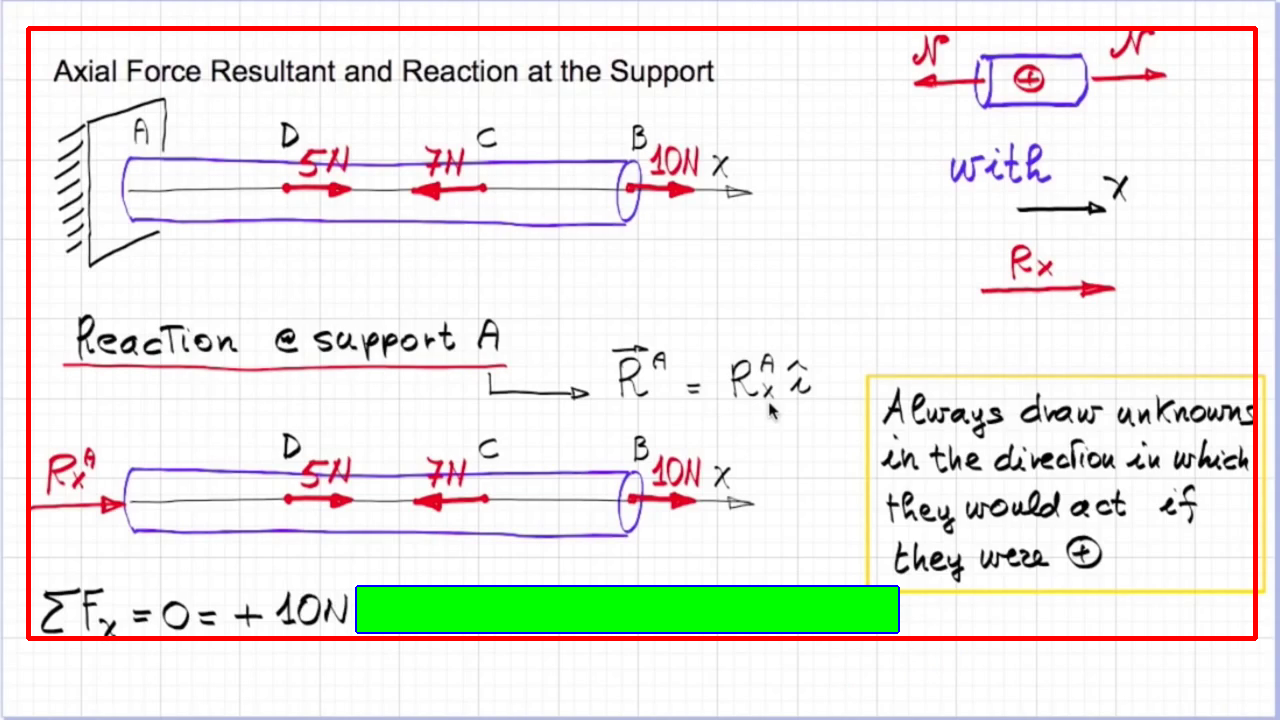 Axial Force Resultant and Reaction at the Support
N + N
A D 5N 7N C B 10N x
with
x
Rx
Reaction @ support A
R^A = Rx^A î
Always draw unknowns
in the direction in which
they would act if
they were +
Rx^A D 5N 7N C B 10N x
ΣFx = 0 = + 10N